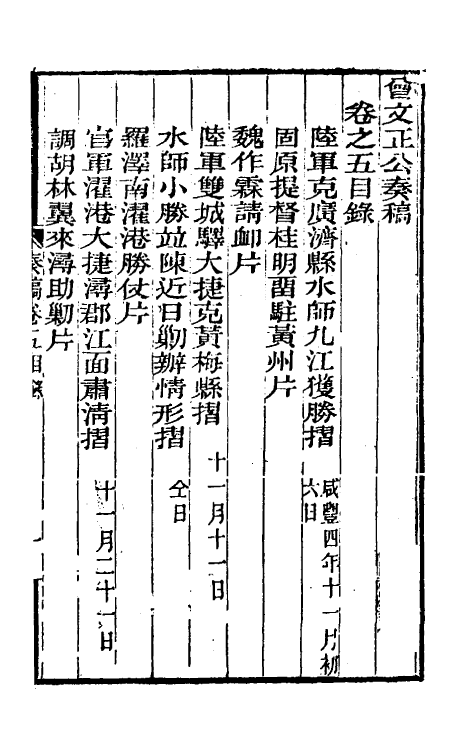 曾文正公奏稿
卷之五目錄
陸軍克廣濟縣水師九江獲勝摺 咸豐四年十一月初六日
固原提督桂明畱駐黃州片
魏作霖請卹片
陸軍雙城驛大捷克黃梅縣摺 十一月十一日
水師小勝竝陳近日勦辦情形摺 仝日
羅澤南濯港勝仗片
官軍濯港大捷潯郡江面肅淸摺 十一月二十一日
調胡林翼來潯助勦片
奏稿卷五目錄